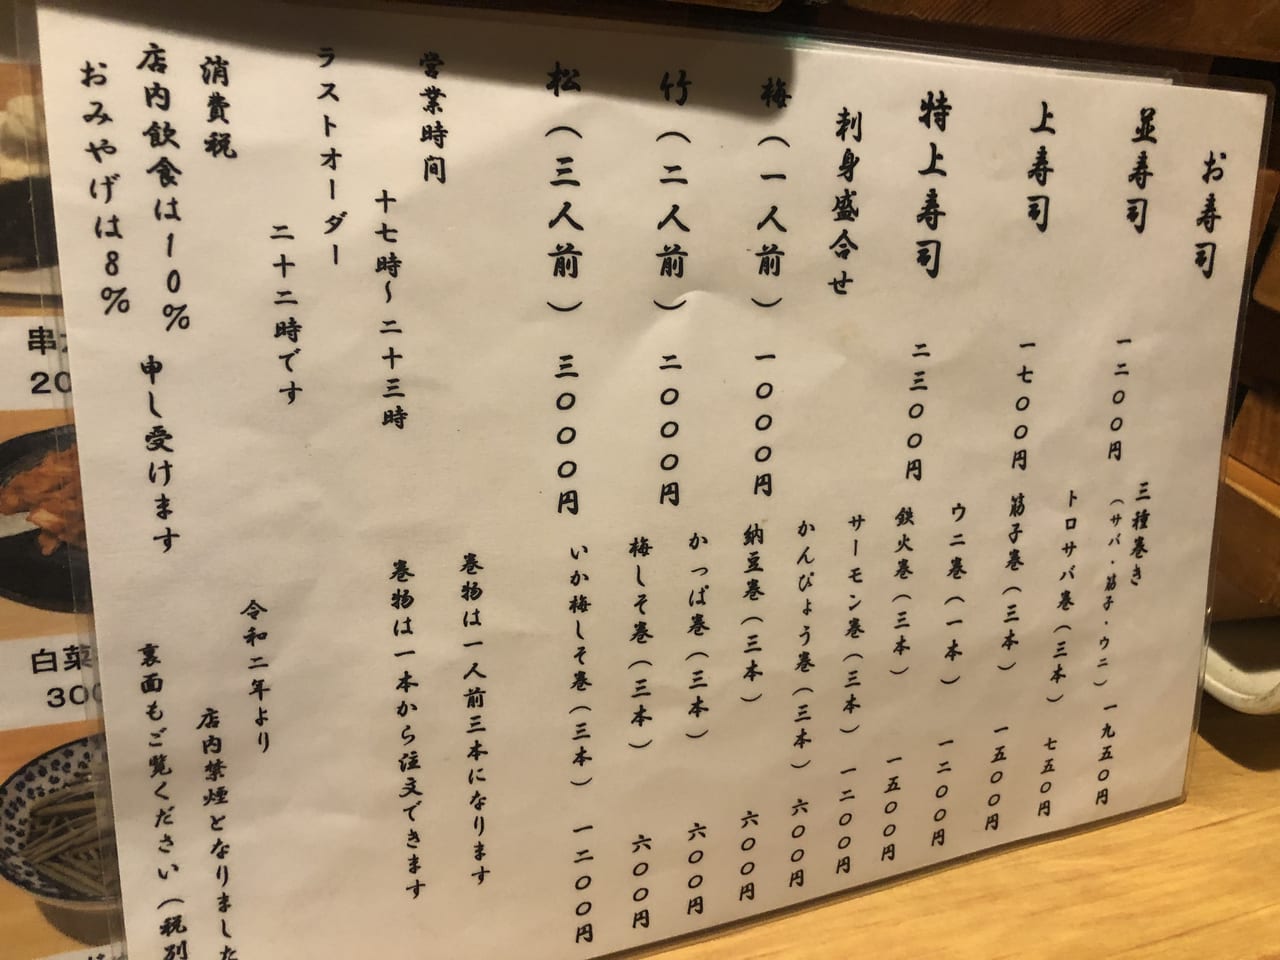 お寿司
並寿司 一二〇〇円
上寿司 一七〇〇円
特上寿司 二三〇〇円
刺身盛合せ
梅（一人前） 一〇〇〇円
竹（二人前） 二〇〇〇円
松（三人前） 三〇〇〇円
三種巻き
（サバ・筋子・ウニ） 一九五〇円
トロサバ巻（三本） 七五〇円
筋子巻（三本） 一五〇〇円
ウニ巻（一本） 一二〇〇円
鉄火巻（三本） 一五〇〇円
サーモン巻（三本） 一二〇〇円
かんぴょう巻（三本） 六〇〇円
納豆巻（三本） 六〇〇円
かっぱ巻（三本） 六〇〇円
梅しそ巻（三本） 六〇〇円
いか梅しそ巻（三本） 一二〇〇円
巻物は一人前三本になります
巻物は一本から注文できます
営業時間
十七時〜二十三時
ラストオーダー
二十二時です
消費税
店内飲食は10％
おみやげは8％
申し受けます
令和二年より
店内禁煙となりました
裏面もご覧ください（税別
串
20
白菜
300